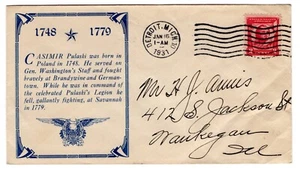 1748 ☆ 1779
CASIMIR Pulaski was born in
Poland in 1748. He served on
Gen. Washington's Staff and fought
bravely at Brandywine and German-
town. While he was in command of
the celebrated Pulaski's Legion he
fell, gallantly fighting, at Savannah
in 1779.
DETROIT, MICH.
JAN 16
1-AM
1931
Mr H. J. Amis
412 S. Jackson St
Waukegan
Ill